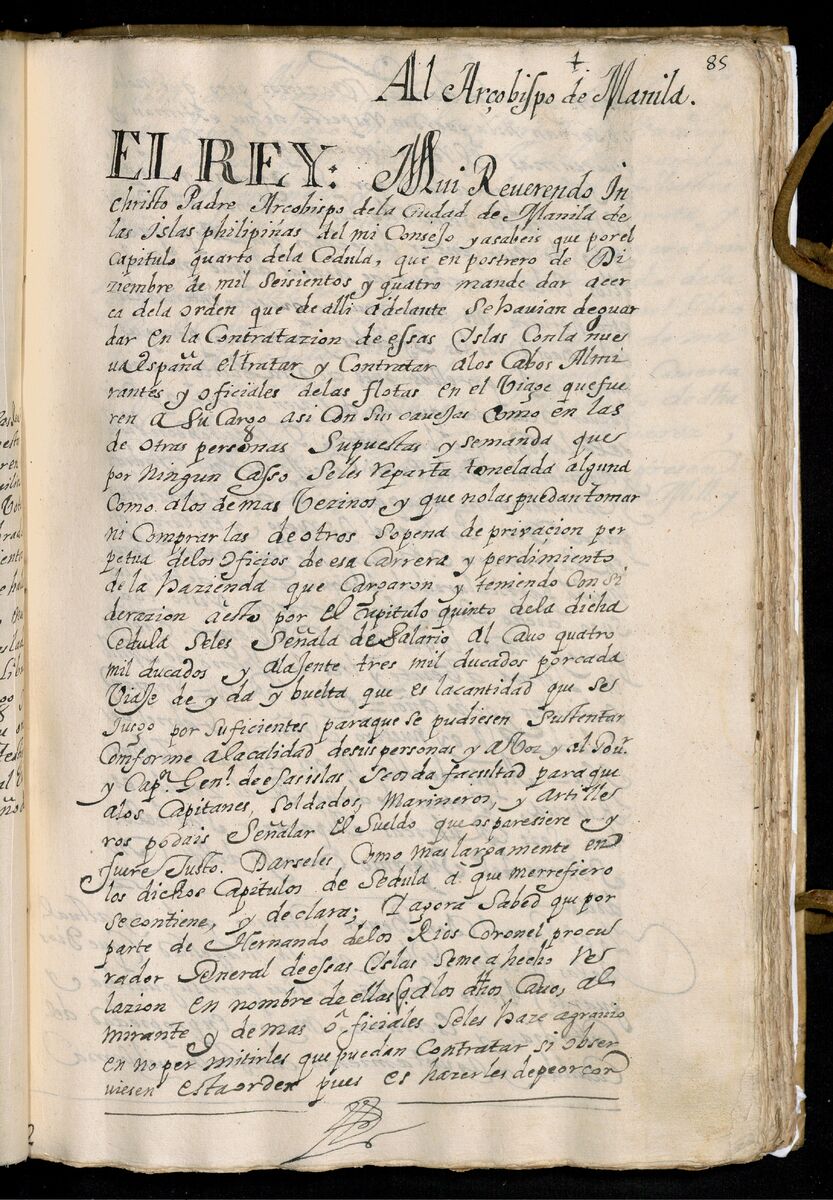 85
+
Al Arçobispo de Manila.
EL REY: Mui Reuerendo In
christo Padre Arcobispo dela Ciudad de Manila de
las Islas philipinas del mi Consejo yasabeis que porel
Capitulo quarto dela Cedula, que en postrero de Di
ziembre de mil seisientos y quatro mande dar acer
ca dela orden que de alli adelante Sehauian deguar
dar en la Contratazion de essas Islas Conla nue
ua españa el tratar y Contratar alos Cabos Almi
rantes y oficiales delas flotas en el Viage quefue
ren a Su Cargo asi Con sus cauesas Como en las
de otras personas Supuestas y semanda que
por Ningun Casso Seles reparta tonelada alguna
Como alos demas Vezinos y que nolas puedan tomar
ni Comprarlas de otros sopena de priuacion per
petua delos oficios de esa Carrera y perdimiento
de la hazienda que Cargaron y teniendo Consi
derazion a esto por El Capitulo quinto dela dicha
Cedula Seles Señala de Salario al Cauo quatro
mil ducados y alasente tres mil ducados porcada
Viaje de yda y buelta que es lacantidad que ses
Jusgo por suficientes paraque se pudiesen Sustentar
Conforme alacalidad desus personas y a Vos y al Gou.r
y Cap.n Gen.l de esasislas, Seos da facultad para que
alos Capitanes, Soldados, Marineros, y Artille
ros podais Señalar El Sueldo que os paresiere y
fuere Justo. Darseles Como mas largamente en
los dichos Capitulos de Sedula a que merrefiero
secontiene, y declara; Yagora Sabed que por
parte de Hernando delos Rios Coronel procu
rador General deessas Islas Seme a hecho Re
lazion en nombre de ellas q alos dhos Cauo, al
mirante y demas oficiales seles haze agrauio
en no permitirles que puedan Contratar si obser
uiesen esta orden pues es hazerles depeor con